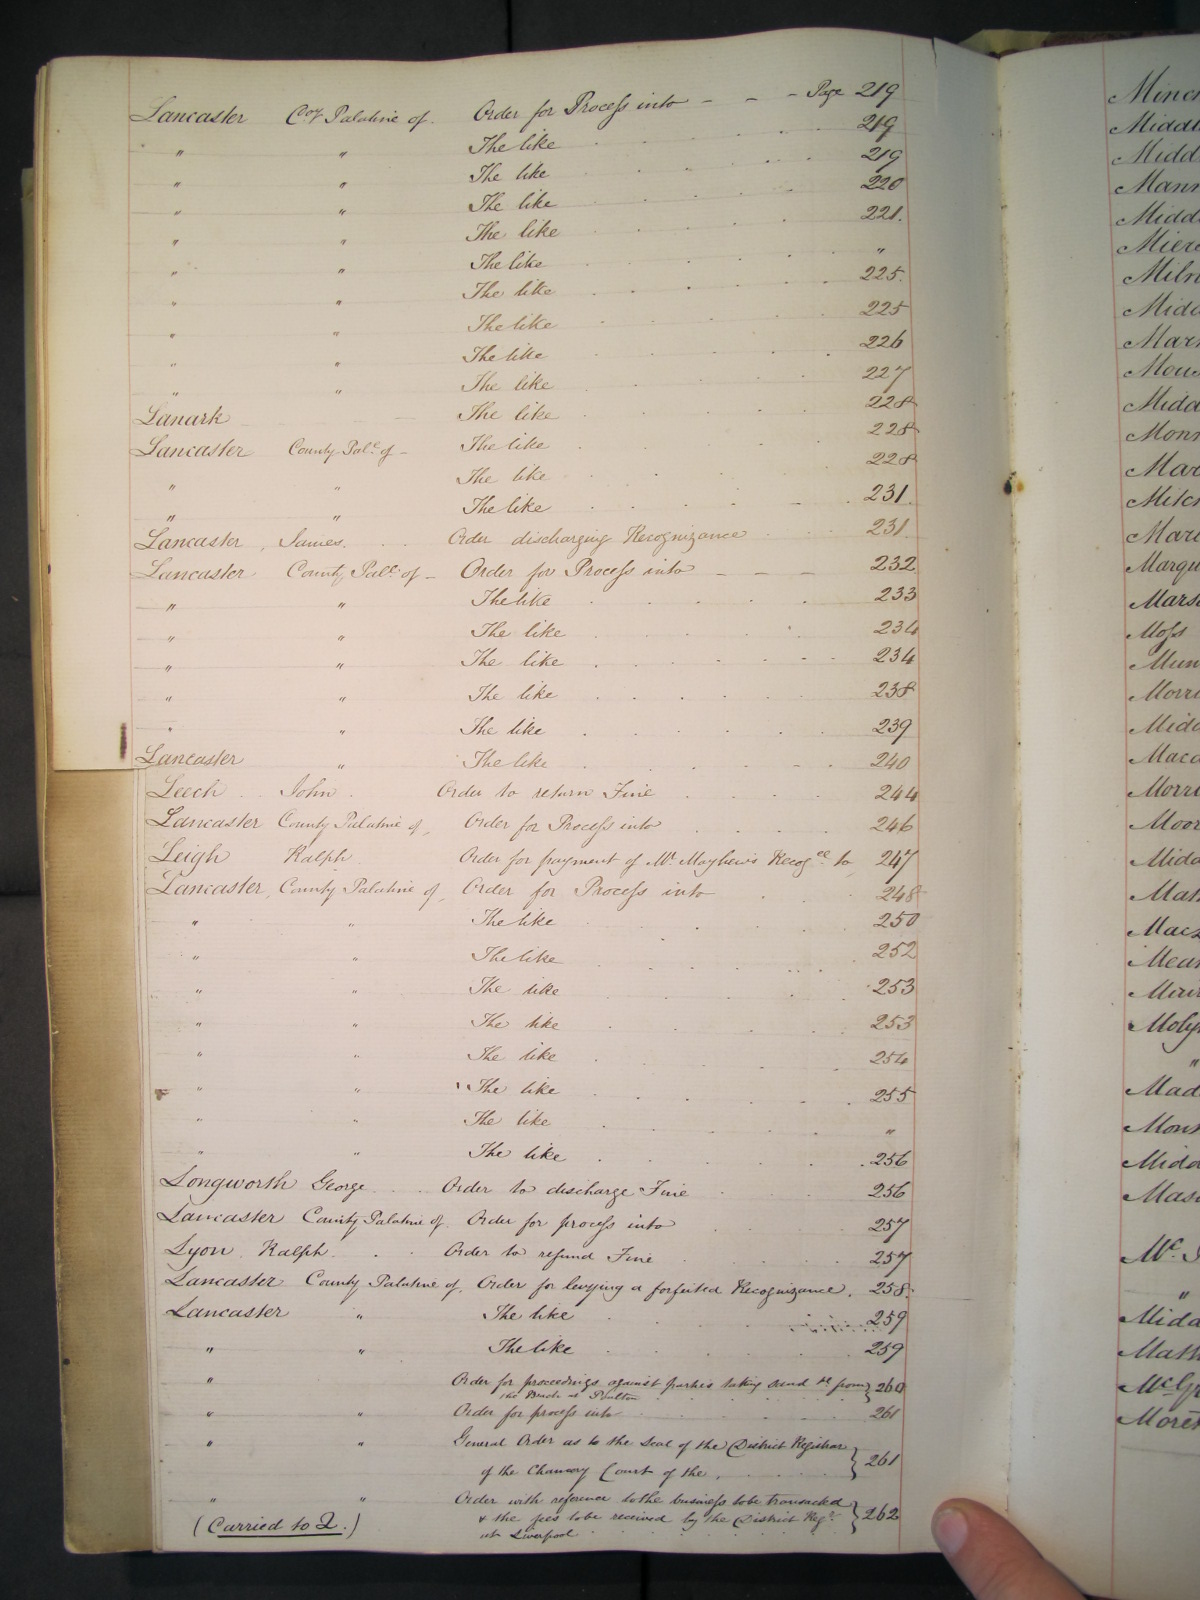 Lancaster Coy Palatine of. Order for Process into - - - Page 219
" " The like 219
" " The like 219
" " The like 220
" " The like 221.
" " The like "
" " The like 225.
" " The like 225
" " The like 226
" " The like 227
Lanark The like 228
Lancaster County Palc. of - The like 228
" " The like 228
" " The like 231.
Lancaster, James. Order discharging Recognizance 231.
Lancaster County Palc. of - Order for Process into - - - 232
" " The like 233
" " The like 234
" " The like 234
" " The like 238
" " The like 239
Lancaster " The like 240
Leech John. Order to return Fine 244
Lancaster County Palatine of, Order for Process into 246
Leigh Ralph Order for payment of Mr. Mayhew's Recogce. to 247
Lancaster, County Palatine of, Order for Process into 248
" " The like 250
" " The like 252
" " The like 253
" " The like 253
" " The like 254
" " The like 255
" " The like "
" " The like 256
Longworth George Order to discharge Fine 256
Lancaster County Palatine of. Order for process into 257
Lyon Ralph. Order to refund Fine 257
Lancaster County Palatine of, Order for levying a forfeited Recognizance. 258.
Lancaster " The like 259
" " The like 259
" Order for proceedings against parties taking sand &c from } 260
the Beach at Poulton
" " Order for process into 261
" " General Order as to the Seal of the District Registrar
of the Chancery Court of the, } 261
" " Order with reference to the business to be transacted
& the fees to be received by the District Regr. } 262
at Liverpool
(Carried to 2.)
Middl
Midd
Mann
Midd
Miln
Monn
Mitch
Marqu
Moss
Mun
Morri
Morri
Moor
Math
Mean
Moly
"
Mad
Mc.
"
Mida
Math
McGr